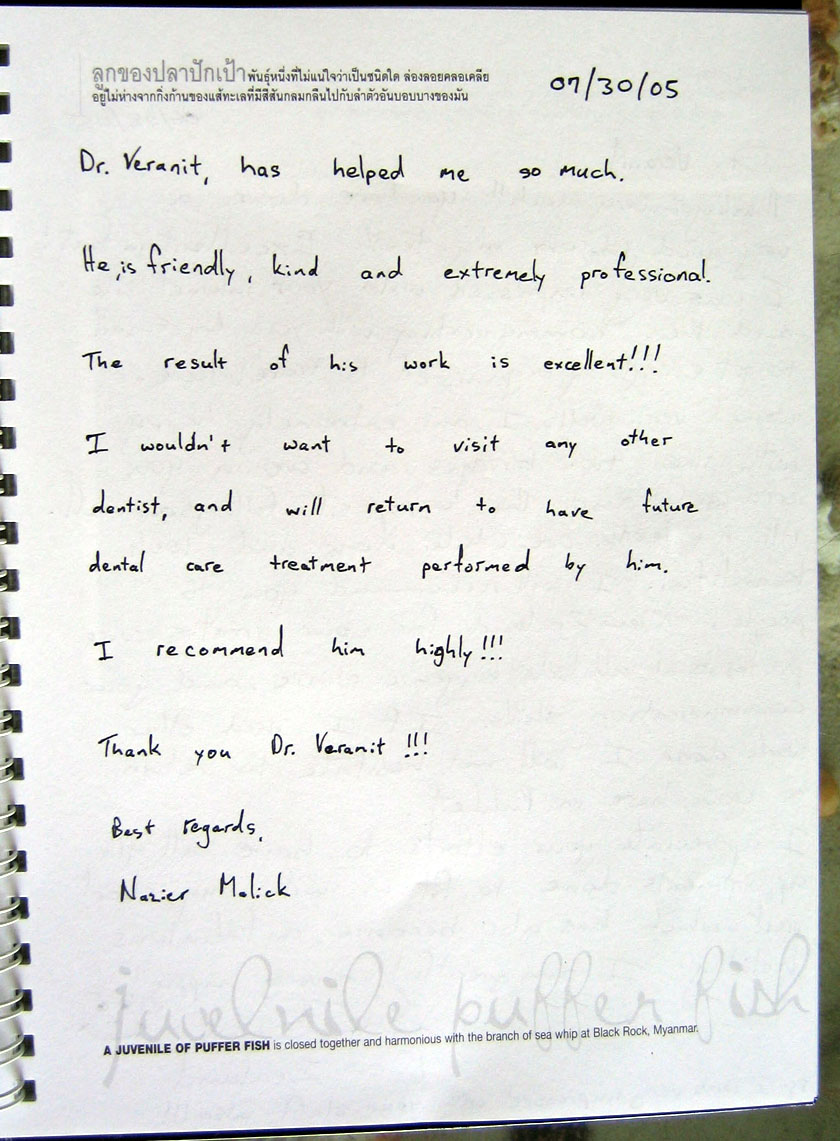 ลูกของปลาปักเป้าพันธุ์หนึ่งที่ไม่แน่ใจว่าเป็นชนิดใด ล่องลอยคลอเคลีย
อยู่ไม่ห่างจากกิ่งก้านของแส้ทะเลที่มีสีสันกลมกลืนไปกับลำตัวอันบอบบางของมัน
07/30/05
Dr. Veranit, has helped me so much.
He, is friendly, kind and extremely professional.
The result of his work is excellent!!!
I wouldn't want to visit any other
dentist, and will return to have future
dental care treatment performed by him.
I recommend him highly!!!
Thank you Dr. Veranit !!!
Best regards,
Nazier Malick
juvelnile puffer fish
A JUVENILE OF PUFFER FISH is closed together and harmonious with the branch of sea whip at Black Rock, Myanmar.